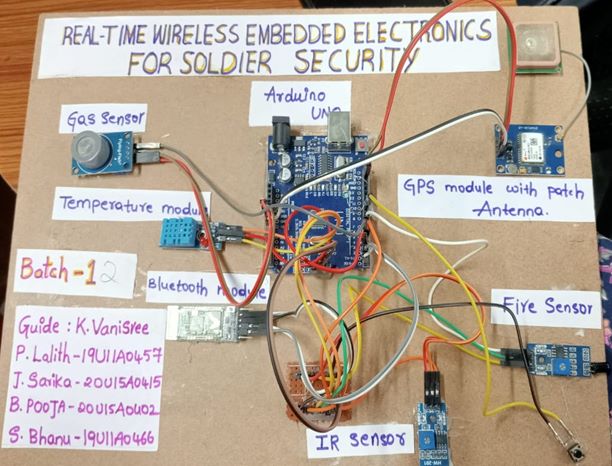 REAL-TIME WIRELESS EMBEDDED ELECTRONICS
FOR SOLDIER SECURITY
Gas sensor
Arduino
UNO
GPS module with patch
Antenna.
Temperature modul
Batch-12
Bluetooth module
Fire Sensor
Guide : K.Vanisree
P. Lalith-19U11A0457
J. Sarika-20U15A0415
B. POOJA-20U15A0402
S. Bhanu-19U11A0466
IR sensor